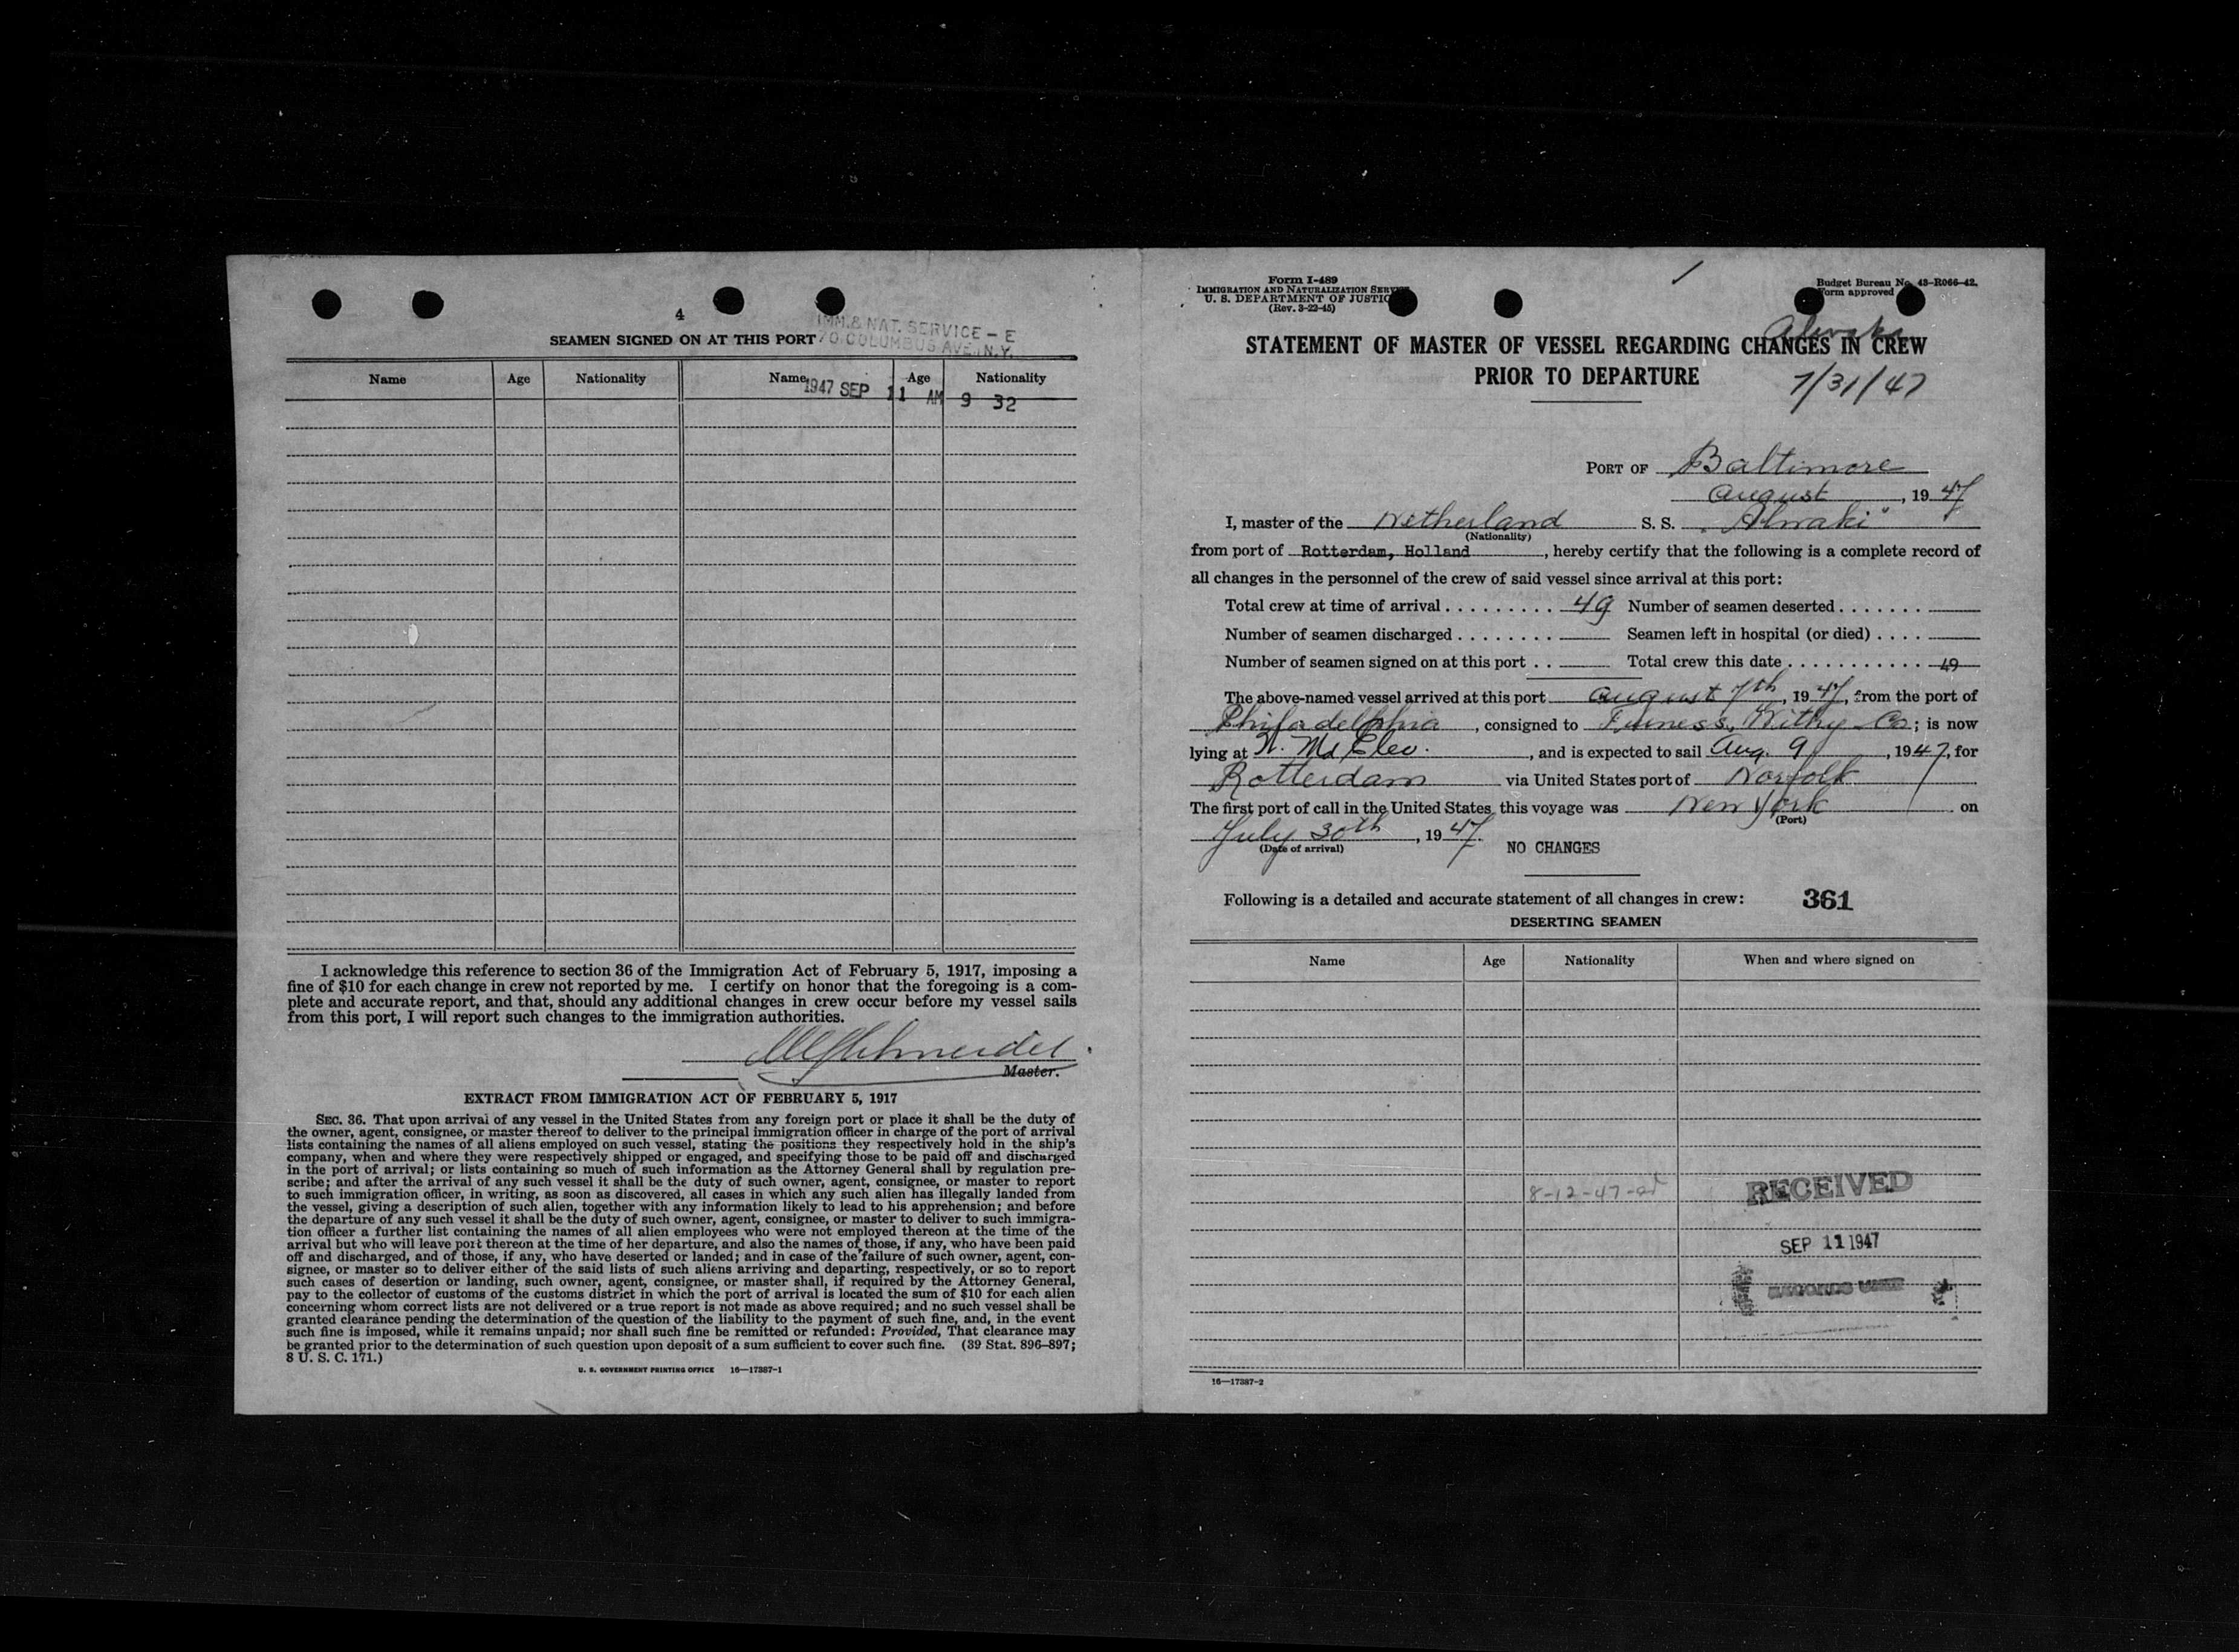 4
IMM. & NAT. SERVICE - E
70 COLUMBUS AVE. N.Y.
SEAMEN SIGNED ON AT THIS PORT
Name Age Nationality Name Age Nationality
1947 SEP 11 AM 9 32
I acknowledge this reference to section 36 of the Immigration Act of February 5, 1917, imposing a
fine of $10 for each change in crew not reported by me. I certify on honor that the foregoing is a com-
plete and accurate report, and that, should any additional changes in crew occur before my vessel sails
from this port, I will report such changes to the immigration authorities.
Master.
EXTRACT FROM IMMIGRATION ACT OF FEBRUARY 5, 1917
SEC. 36. That upon arrival of any vessel in the United States from any foreign port or place it shall be the duty of
the owner, agent, consignee, or master thereof to deliver to the principal immigration officer in charge of the port of arrival
lists containing the names of all aliens employed on such vessel, stating the positions they respectively hold in the ship's
company, when and where they were respectively shipped or engaged, and specifying those to be paid off and discharged
in the port of arrival; or lists containing so much of such information as the Attorney General shall by regulation pre-
scribe; and after the arrival of any such vessel it shall be the duty of such owner, agent, consignee, or master to report
to such immigration officer, in writing, as soon as discovered, all cases in which any such alien has illegally landed from
the vessel, giving a description of such alien, together with any information likely to lead to his apprehension; and before
the departure of any such vessel it shall be the duty of such owner, agent, consignee, or master to deliver to such immigra-
tion officer a further list containing the names of all alien employees who were not employed thereon at the time of the
arrival but who will leave port thereon at the time of her departure, and also the names of those, if any, who have been paid
off and discharged, and of those, if any, who have deserted or landed; and in case of the failure of such owner, agent, con-
signee, or master so to deliver either of the said lists of such aliens arriving and departing, respectively, or so to report
such cases of desertion or landing, such owner, agent, consignee, or master shall, if required by the Attorney General,
pay to the collector of customs of the customs district in which the port of arrival is located the sum of $10 for each alien
concerning whom correct lists are not delivered or a true report is not made as above required; and no such vessel shall be
granted clearance pending the determination of the question of the liability to the payment of such fine, and, in the event
such fine is imposed, while it remains unpaid; nor shall such fine be remitted or refunded: Provided, That clearance may
be granted prior to the determination of such question upon deposit of a sum sufficient to cover such fine. (39 Stat. 896-897;
8 U. S. C. 171.)
U. S. GOVERNMENT PRINTING OFFICE 16—17387-1
Form I-489
IMMIGRATION AND NATURALIZATION SERVICE
U. S. DEPARTMENT OF JUSTICE
(Rev. 3-22-45)
Budget Bureau No. 43-R066-42.
Form approved
Alwaki
STATEMENT OF MASTER OF VESSEL REGARDING CHANGES IN CREW
PRIOR TO DEPARTURE
7/31/47
PORT OF Baltimore
August, 1947
I, master of the Netherland S. S. "Alwaki"
(Nationality)
from port of Rotterdam, Holland, hereby certify that the following is a complete record of
all changes in the personnel of the crew of said vessel since arrival at this port:
Total crew at time of arrival . . . . . . . . . 49 Number of seamen deserted . . . . . . .
Number of seamen discharged . . . . . . . . Seamen left in hospital (or died) . . . .
Number of seamen signed on at this port . . Total crew this date . . . . . . . . . . . 49
The above-named vessel arrived at this port August 7th, 1947, from the port of
Philadelphia, consigned to Furness, Withy Co; is now
lying at W. Md Elev., and is expected to sail Aug. 9, 1947, for
Rotterdam via United States port of Norfolk
The first port of call in the United States this voyage was New York on
(Port)
July 30th, 1947
(Date of arrival)
NO CHANGES
Following is a detailed and accurate statement of all changes in crew: 361
DESERTING SEAMEN
Name Age Nationality When and where signed on
8-12-47
RECEIVED
SEP 11 1947
RECORDS UNIT
16—17387-2